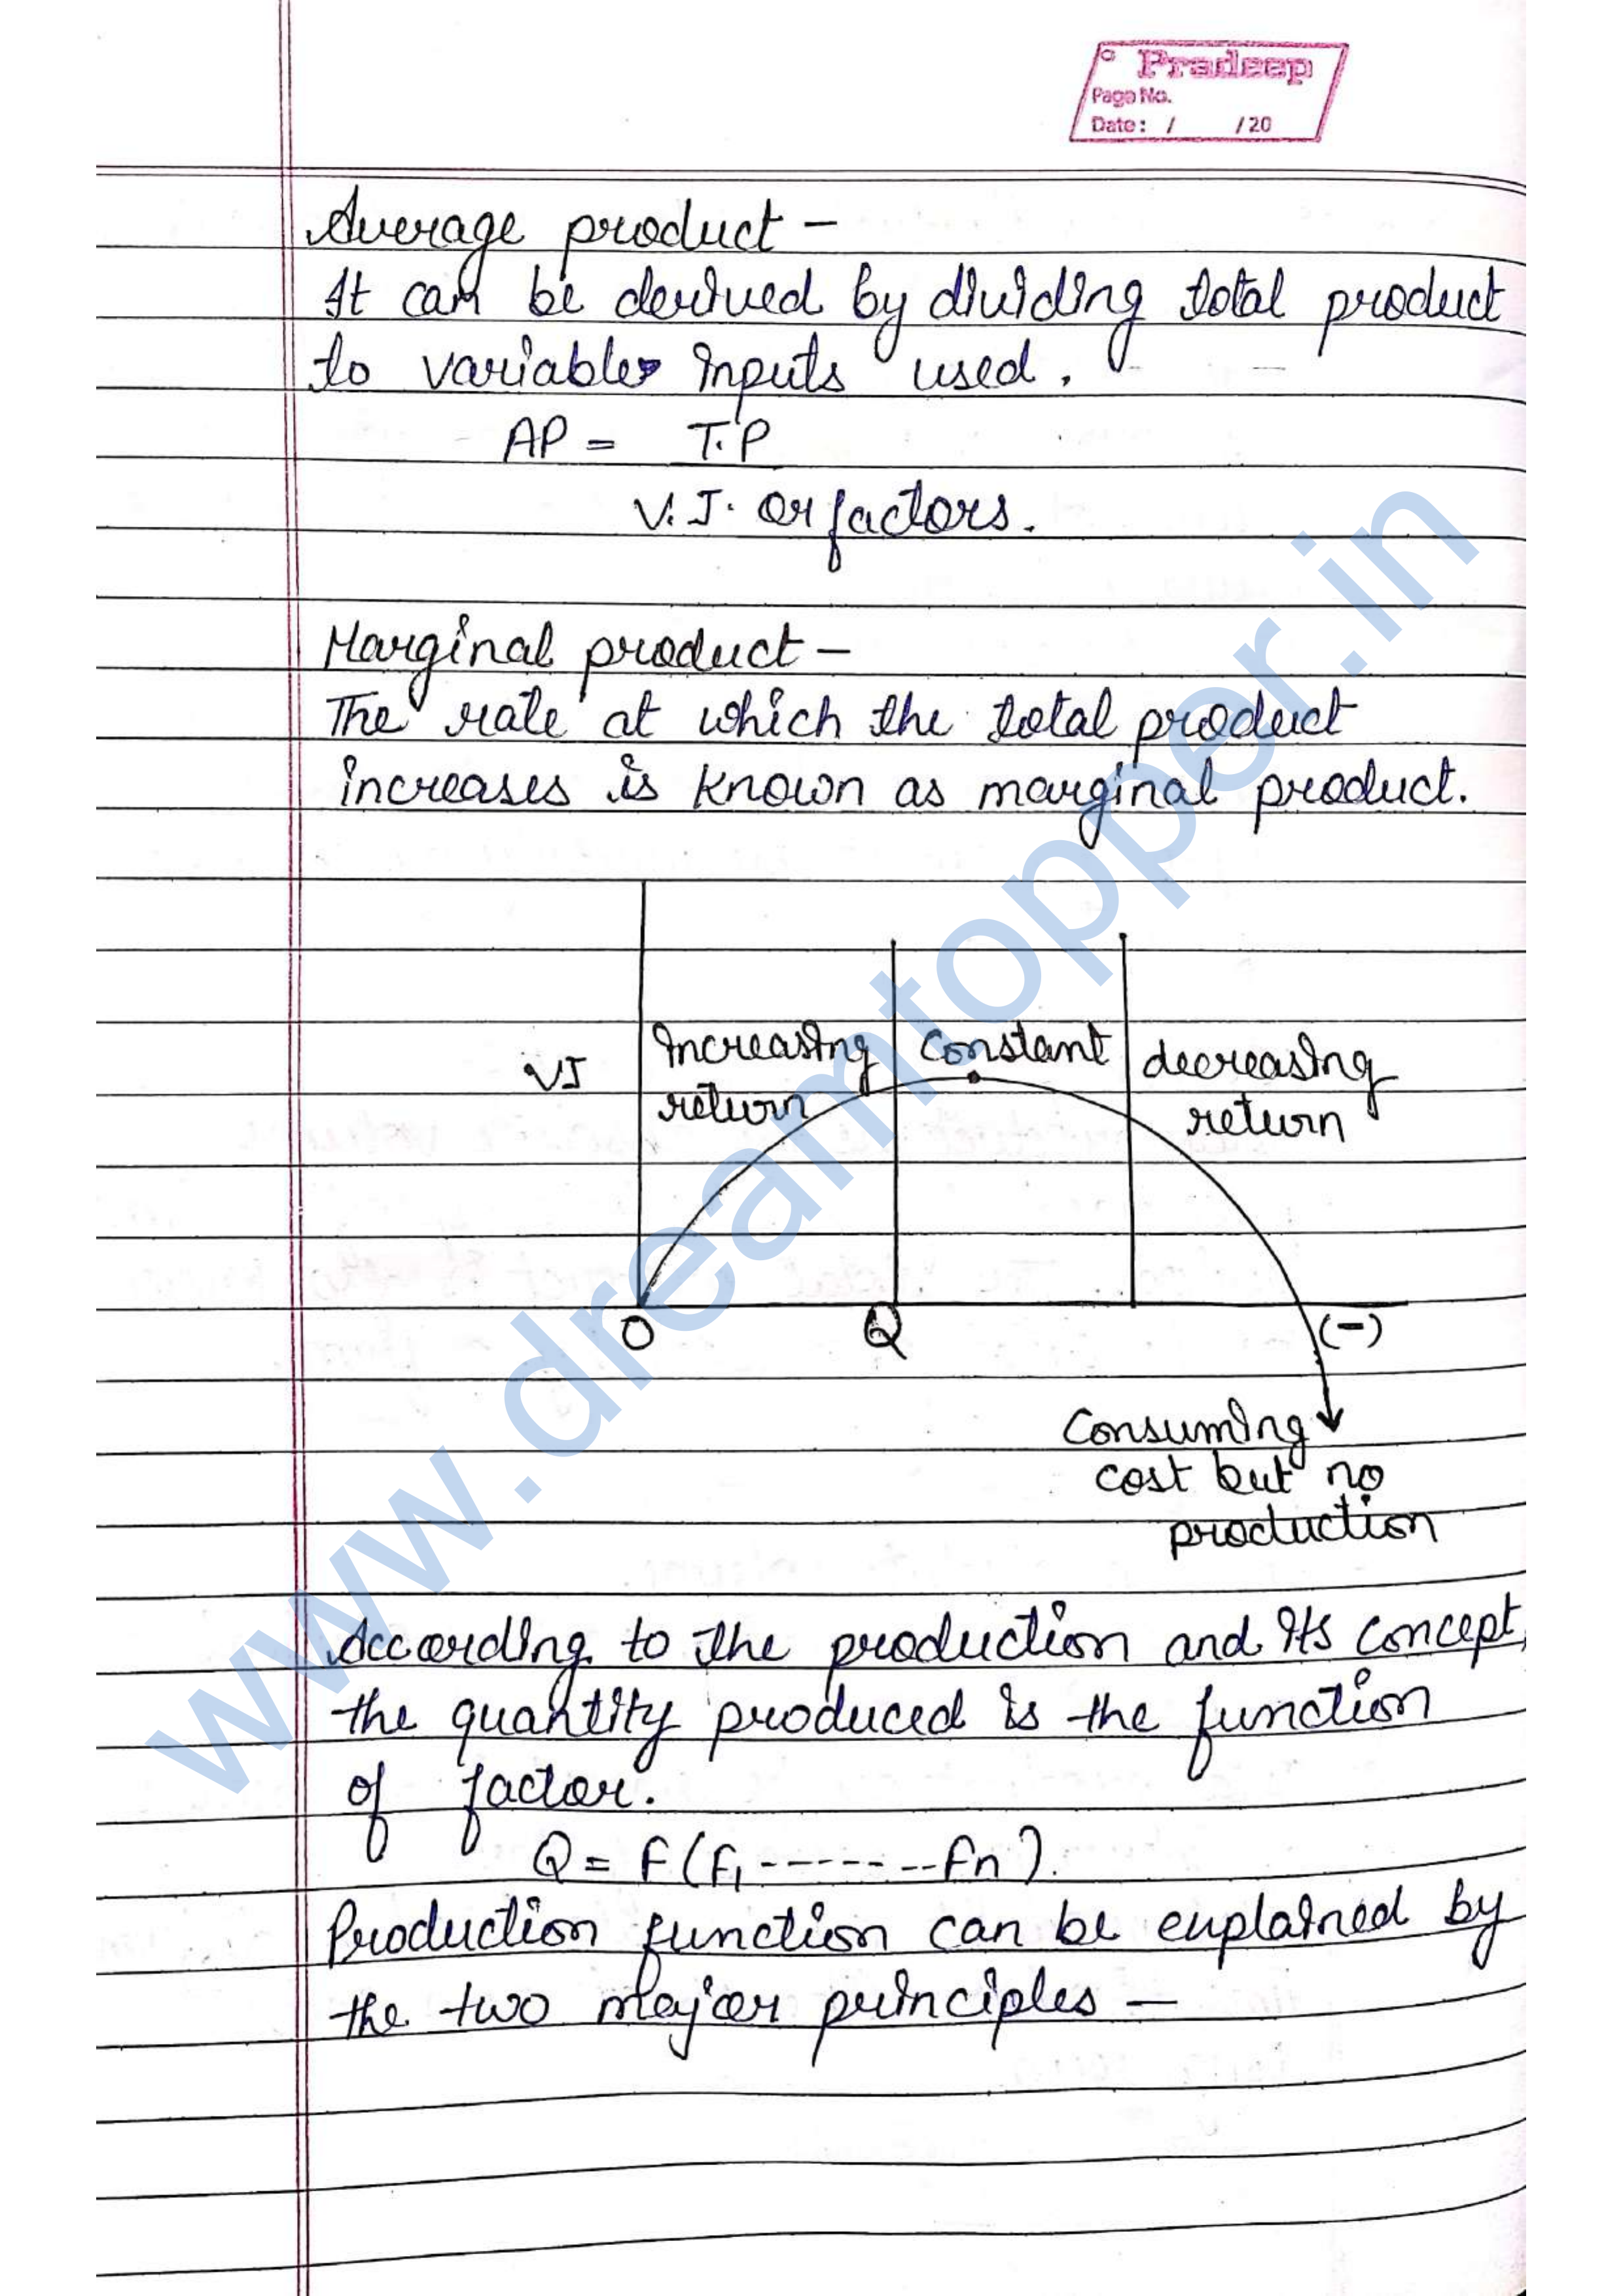 Pradeep
Page No.
Date: / /20
Average product -
It can be derived by dividing total product
to variable inputs used.
AP = T.P
V.I. or factors.
Marginal product -
The rate at which the total product
increases is known as marginal product.
VI
increasing
return
Constant
decreasing
return
O
Q
(-)
Consuming
cost but no
production
According to the production and its concept,
the quantity produced is the function
of factor.
Q = F(F1 -------- Fn).
Production function can be explained by
the two major principles -
www.dreamtopper.in